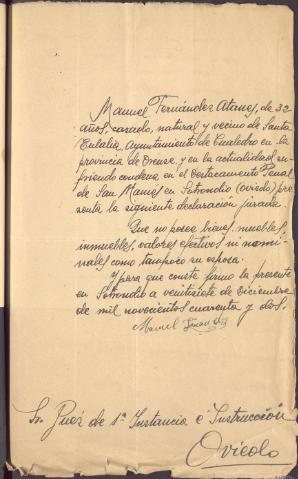 Manuel Fernández Atanes, de 32
años, casado, natural y vecino de Santa
Eulalia, Ayuntamiento de Cualedro en la
provincia de Orense, y en la actualidad su-
friendo condena en el Destacamento Penal
de San Mamés en Sotrondio (Oviedo) pre-
senta la siguiente declaración jurada.
Que no posee bienes muebles,
inmuebles, valores efectivos ni nomi-
nales como tampoco su esposa.
Y para que conste firmo la presente
en Sotrondio a veintisiete de Diciembre
de mil novecientos cuarenta y dos.
Manuel
Sr. Juez de 1ª Instancia é Instrucción
Oviedo